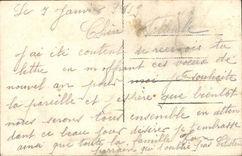 Le 7 Janvier
Chère
j'ai été content de recevoir ta
lettre en m'offrant ces voeux de
nouvel an pour moi je souhaite
la pareille et j'espère que bientôt
nous serons tous ensemble en atten
dant ce beau jour je embrasse
ainsi que toute la famille
parrain qui t'oublie pas